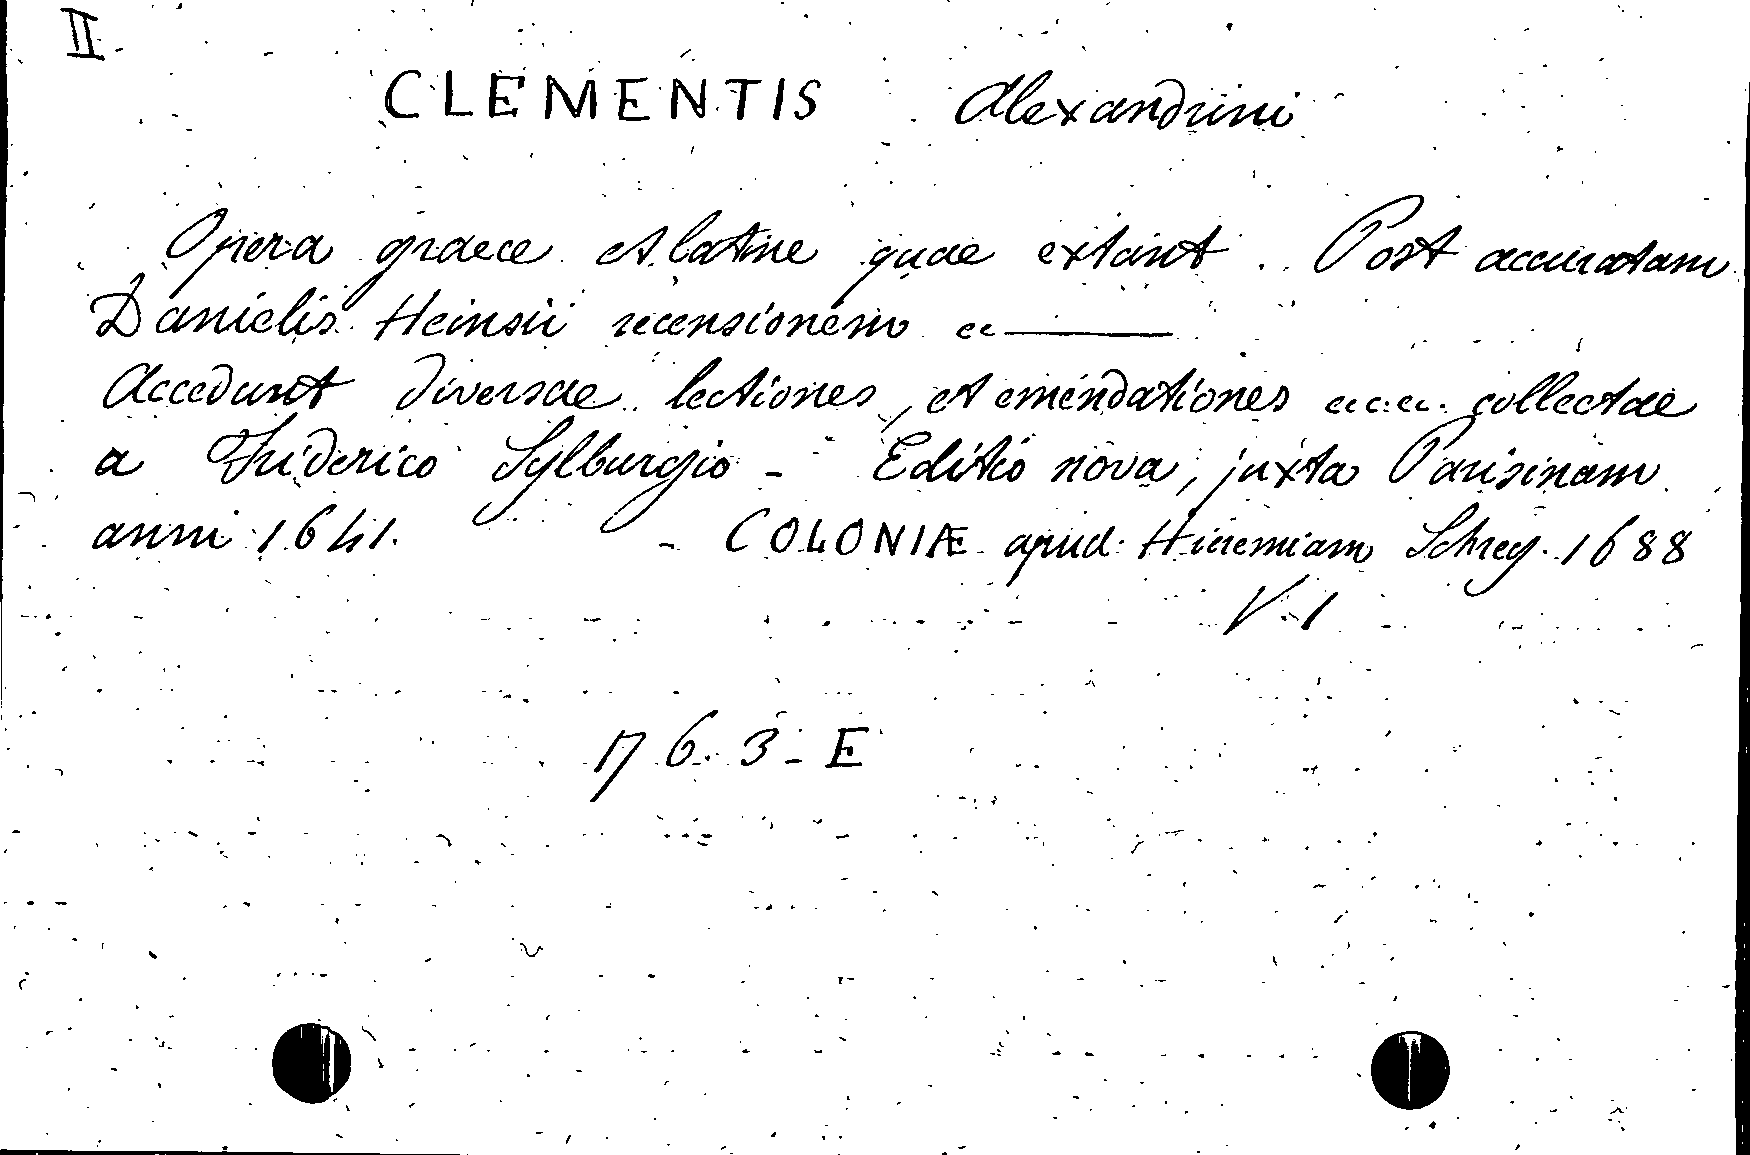 II
CLEMENTIS Alexandrini
Opera graece et latine quae extant. Post accuratam
Danielis Heinsii recensionem cc———
Accedunt diversae lectiones, et emendationes cc.cc. collectae
a Friderico Sylburgio - Editio nova, juxta Parisinam
anni 1641. - COLONIÆ apud Hieremiam Schrey. 1688
V-1
1763-E